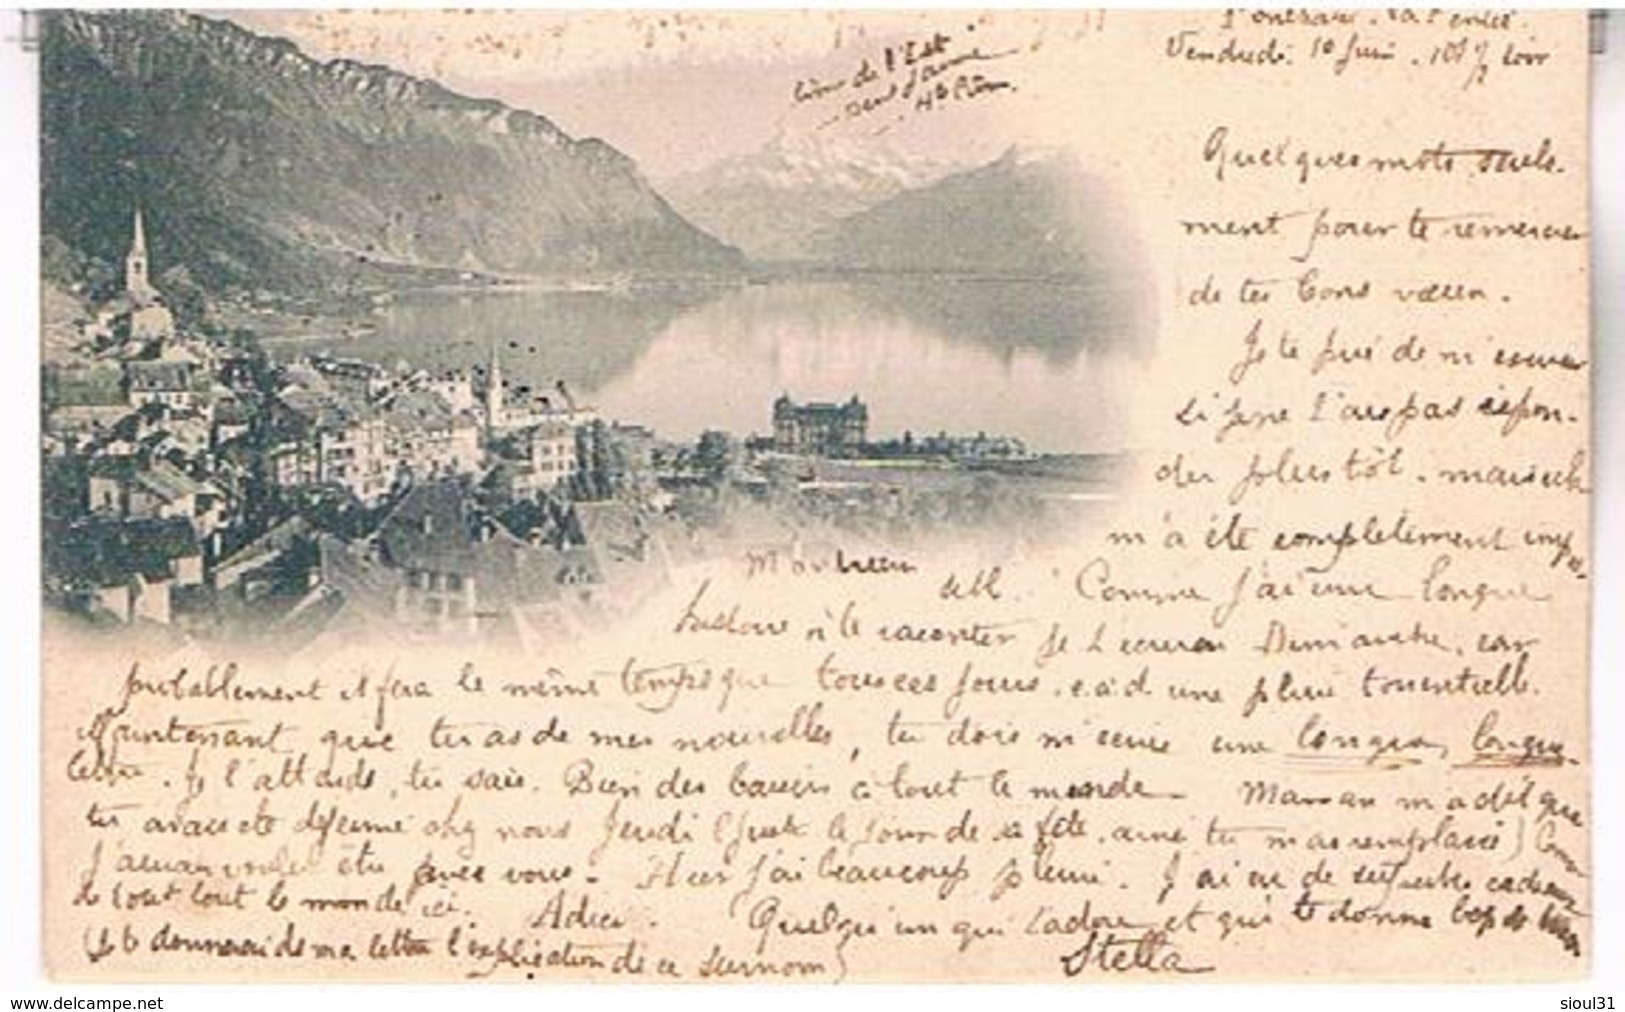 Vendredi 10 Juin. soir
Quelques mots seule-
ment pour te remercier
de tes bons vœux.
Je te prie de m'excuser
si je ne t'ai pas répon-
du plus tôt. mais cela
m'a été complètement impos-
Montreux
sible. Comme j'ai une longue
histoire à te raconter je t'écrirai Dimanche, car
probablement il fera le même temps que tous ces jours. c.à.d. une pluie torrentielle.
Maintenant que tu as de mes nouvelles, tu dois m'écrire une longue, longue
lettre. Je l'attends, tu sais. Bien des baisers à tout le monde. Maman m'a dit que
tu avais été déjeuner chez nous Jeudi (juste le jour de sa fête. ainsi tu m'as remplacée)
J'aurais voulu être avec vous. Hier j'ai beaucoup pleuré. J'ai eu de superbes cadeaux
de tout tout le monde ici. Adieu. Quelqu'un qui t'adore et qui te donne
(Je te donnerai de ma lettre l'explication de ce surnom) Stella
www.delcampe.net
sioul31